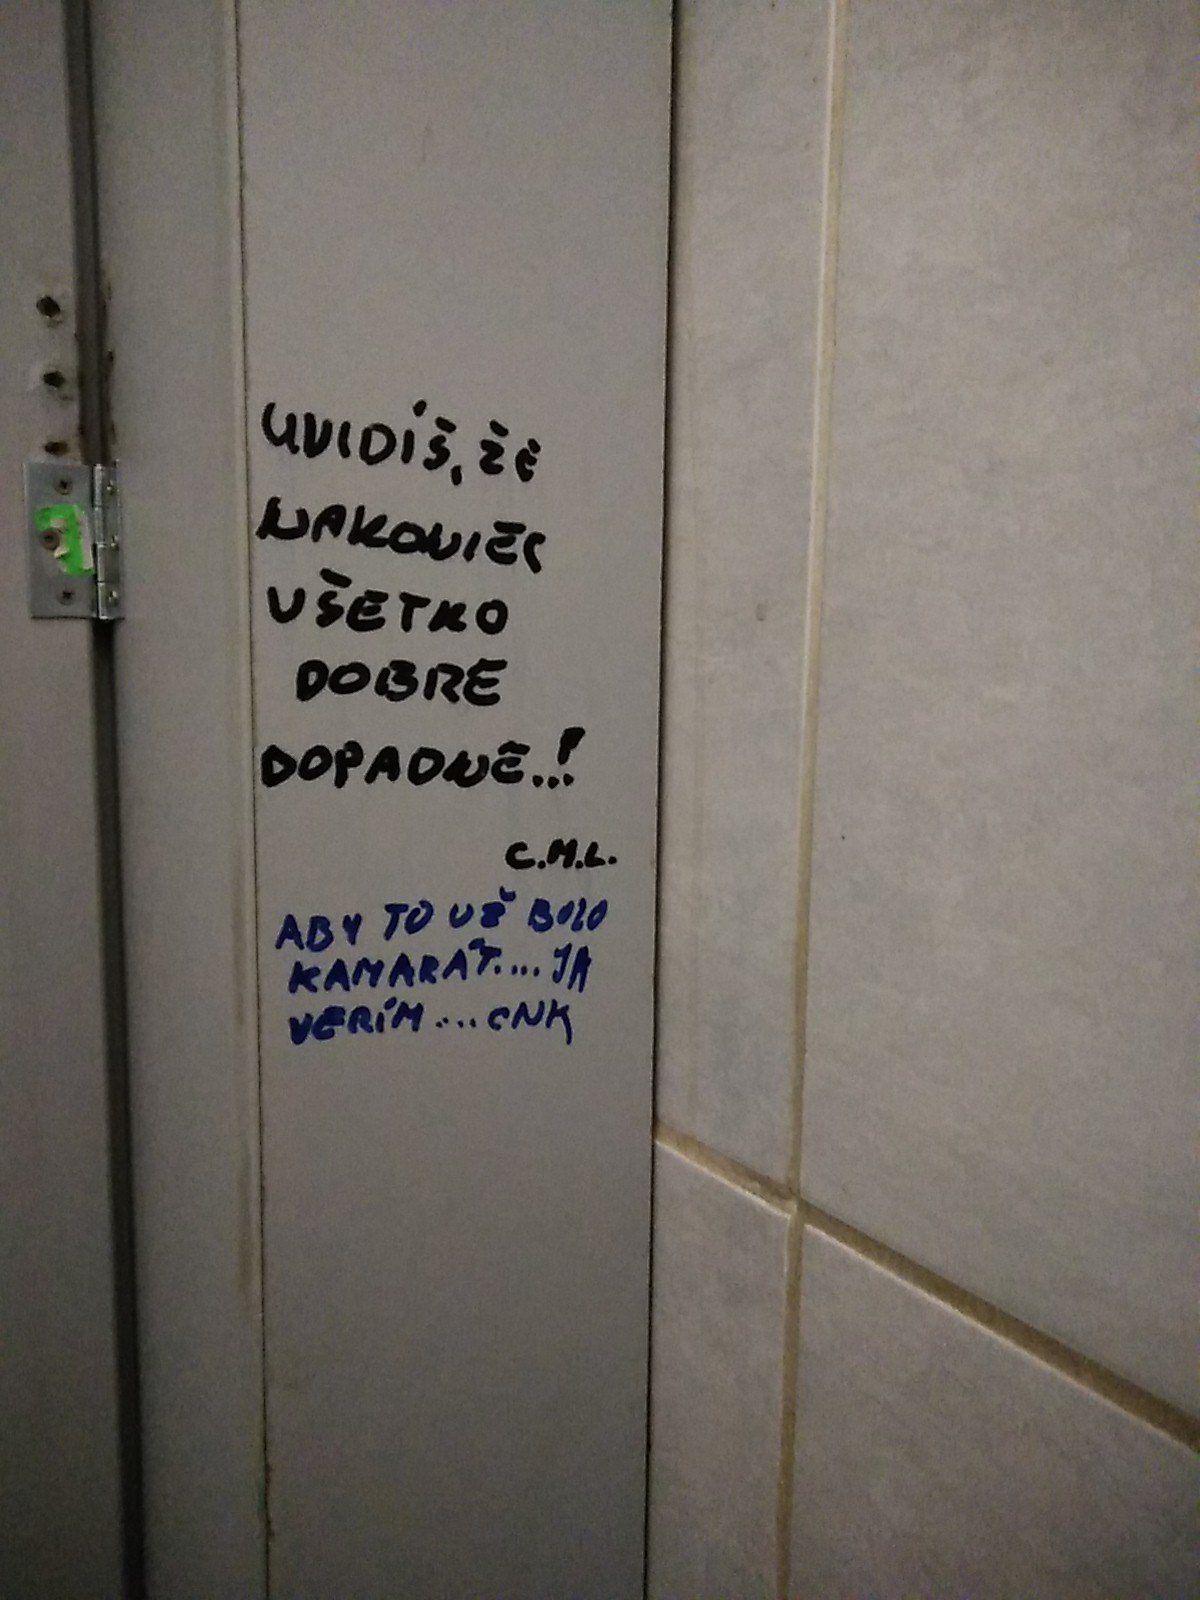 UVIDÍŠ, ŽE
NAKONIEC
VŠETKO
DOBRE
DOPADNE..!
C.M.L.
ABY TO UŽ BOLO
KAMARÁT.... JA
VERÍM.... CNK